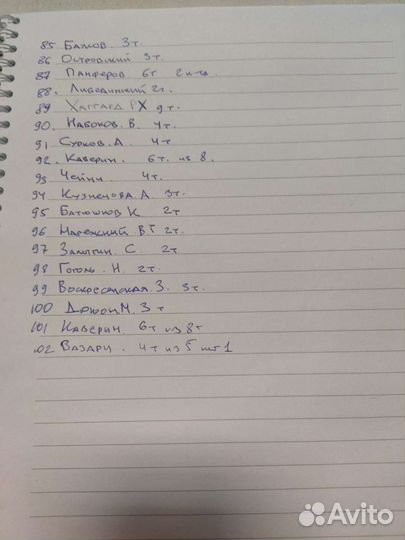 85 Бажов. 3т.
86 Островский 3т.
87 Панферов 6т
88. Либединский 2т.
89 Хаггард РХ 9т.
90. Набоков. В. 4т.
91 Сурков. А. 4т
92. Каверин. 6т. из 8.
93 Чейни 4т.
94 Кузнецова А. 3т.
95 Батюшков К. 2т
96 Нарежний В.Т 2т.
97 Залыгин. С. 2т
98 Гоголь. Н. 2т.
99 Воскресенская З. 3т.
100 М. 3т
101 Каверин 6т из 8т
102 Вазари. 4т из 5
Avito